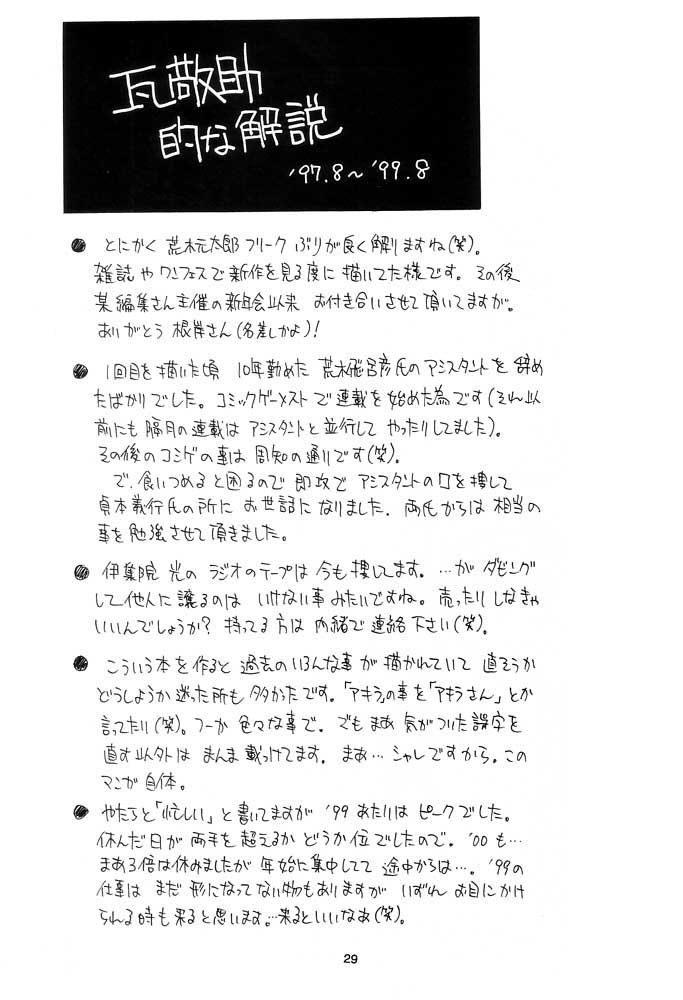 瓦敬助
的な解説
'97.8〜'99.8
● とにかく 荒木元太郎フリークぶりが良く解りますね(笑)。
雑誌やワンフェスで新作を見る度に描いてた様です。その後
某編集さん主催の新年会以来 お付き合いさせて頂いてますが。
ありがとう 根岸さん(名差しかよ)!
● 1回目を描いた頃 10年勤めた 荒木飛呂彦氏のアシスタントを辞め
たばかりでした。コミックゲーメストで連載を始めた為です(それ以
前にも隔月の連載は アシスタントと並行して やったりしました)。
その後のコミゲの事は 周知の通りです(笑)。
で、食いつめると困るので 即攻で アシスタントの口を捜して
貞本義行氏の所に お世話になりました。両氏からは 相当の
事を勉強させて頂きました。
● 伊集院 光の ラジオのテープは 今も捜してます。…が ダビング
して他人に譲るのは いけない事みたいですね。売ったりしなきゃ
いいんでしょうか? 持ってる方は 内緒で連絡下さい(笑)。
● こういう本を作ると 過去のいろんな事が描かれていて 直そうか
どうしようか迷った所も多かったです。「アキラ」の事を「アキラさん」とか
言ってたり(笑)。つーか 色々な事で。でもまあ 気がついた誤字を
直す以外は まんま載っけてます。まあ…シャレですから。この
マンガ自体。
● やたらと「忙しい」と書いてますが '99あたりは ピークでした。
休んだ日が両手を超えるか どうか位でしたので。'00も…
まあ3倍は休みましたが 年始に集中してて 途中からは…。'99の
仕事は まだ形になってない物もありますが いずれ お目にかけ
られる時も来ると思います。…来るといいなあ(笑)。
29